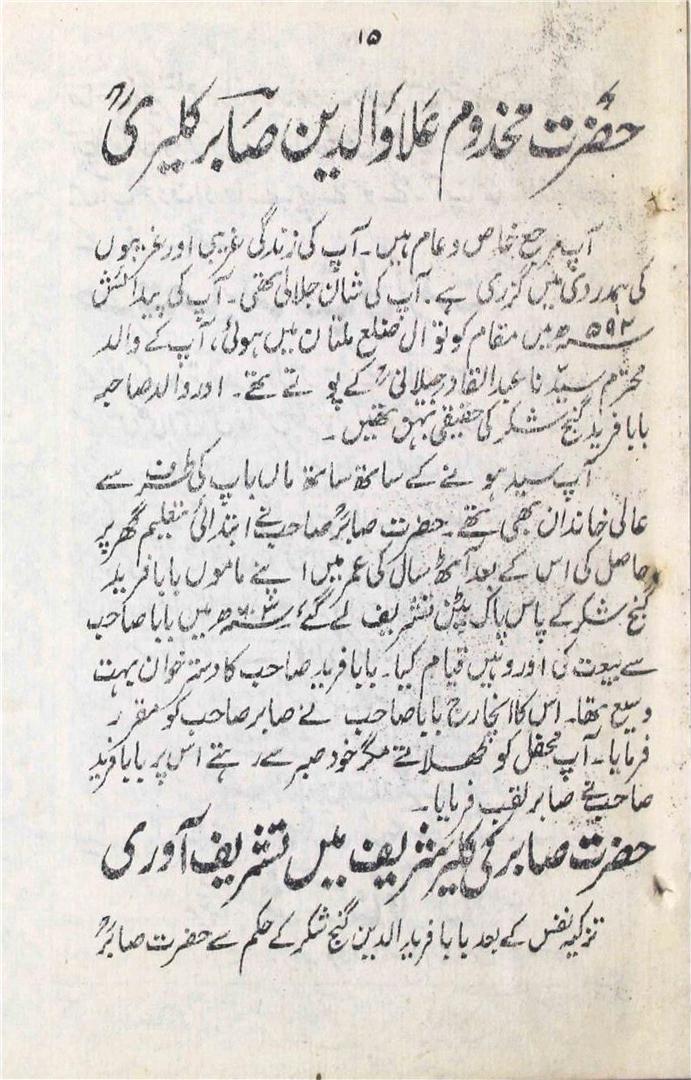 ۱۵
حضرت مخدوم علاؤالدین صابر کلیریؒ
آپ مرجع خاص و عام ہیں۔ آپ کی زندگی غریبی اور غریبوں
کی ہمدردی میں گزری ہے۔ آپ کی شان جلالی تھی۔ آپ کی پیدائش
۵۹۲ھ میں مقام کوتوال ضلع ملتان میں ہوئی، آپ کے والد
محترم سیدنا عبدالقادر جیلانیؒ کے پوتے تھے۔ اور والد صاحبہ
بابا فرید گنج شکر کی حقیقی بہن تھیں۔
آپ سید ہونے کے ساتھ ساتھ ماں باپ کی طرف سے
عالی خاندان بھی تھے۔ حضرت صابرؒ صاحب نے ابتدائی تعلیم گھر پر
حاصل کی اس کے بعد آٹھ سال کی عمر میں اپنے ماموں بابا فرید
گنج شکر کے پاس پاک پٹن تشریف لے گئے، ۶۰۳ھ میں بابا صاحب
سے بیعت کی اور وہیں قیام کیا۔ بابا فرید صاحب کا دسترخوان بہت
وسیع تھا۔ اس کا انچارج بابا صاحب نے صابر صاحب کو مقرر
فرمایا۔ آپ محفل کو کھلاتے مگر خود صبر سے رہتے اس پر بابا فرید
صاحب نے صابر لقب فرمایا۔
حضرت صابر کی کلیر شریف میں تشریف آوری
تزکیہ نفس کے بعد بابا فرید الدین گنج شکر کے حکم سے حضرت صابرؒ